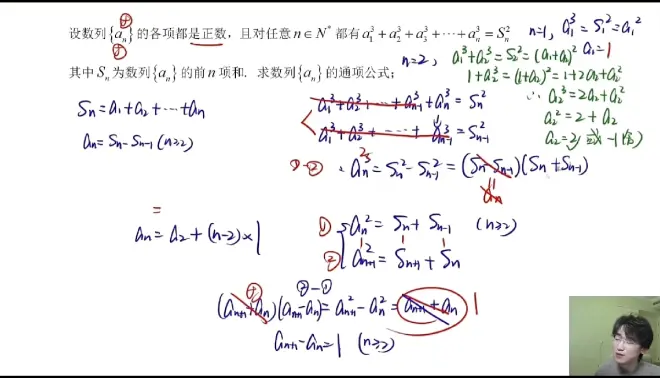 设数列{aₙ}的各项都是正数，且对任意 n∈N* 都有 a₁³+a₂³+a₃³+⋯+aₙ³=Sₙ²
其中 Sₙ 为数列{aₙ}的前 n 项和. 求数列{aₙ}的通项公式；
n=1, a₁³=S₁²=a₁²
a₁=1
n=2, a₁³+a₂³=S₂²=(a₁+a₂)²
1+a₂³=(1+a₂)²=1+2a₂+a₂²
∴ a₂³=2a₂+a₂²
a₂²=2+a₂
a₂=2 或 -1(舍)
Sₙ=a₁+a₂+⋯+aₙ
aₙ=Sₙ-Sₙ₋₁(n≥2)
a₁³+a₂³+⋯+aₙ₋₁³+aₙ³=Sₙ²
a₁³+a₂³+⋯+aₙ₋₁³=Sₙ₋₁²
①-② ∴aₙ³=Sₙ²-Sₙ₋₁²=(Sₙ-Sₙ₋₁)(Sₙ+Sₙ₋₁)
aₙ
=
aₙ=a₂+(n-2)×1
① aₙ²=Sₙ+Sₙ₋₁ (n≥2)
② aₙ₊₁²=Sₙ₊₁+Sₙ
②-①
(aₙ₊₁+aₙ)(aₙ₊₁-aₙ)=aₙ₊₁²-aₙ²=aₙ₊₁+aₙ 1
aₙ₊₁-aₙ=1 (n≥2)